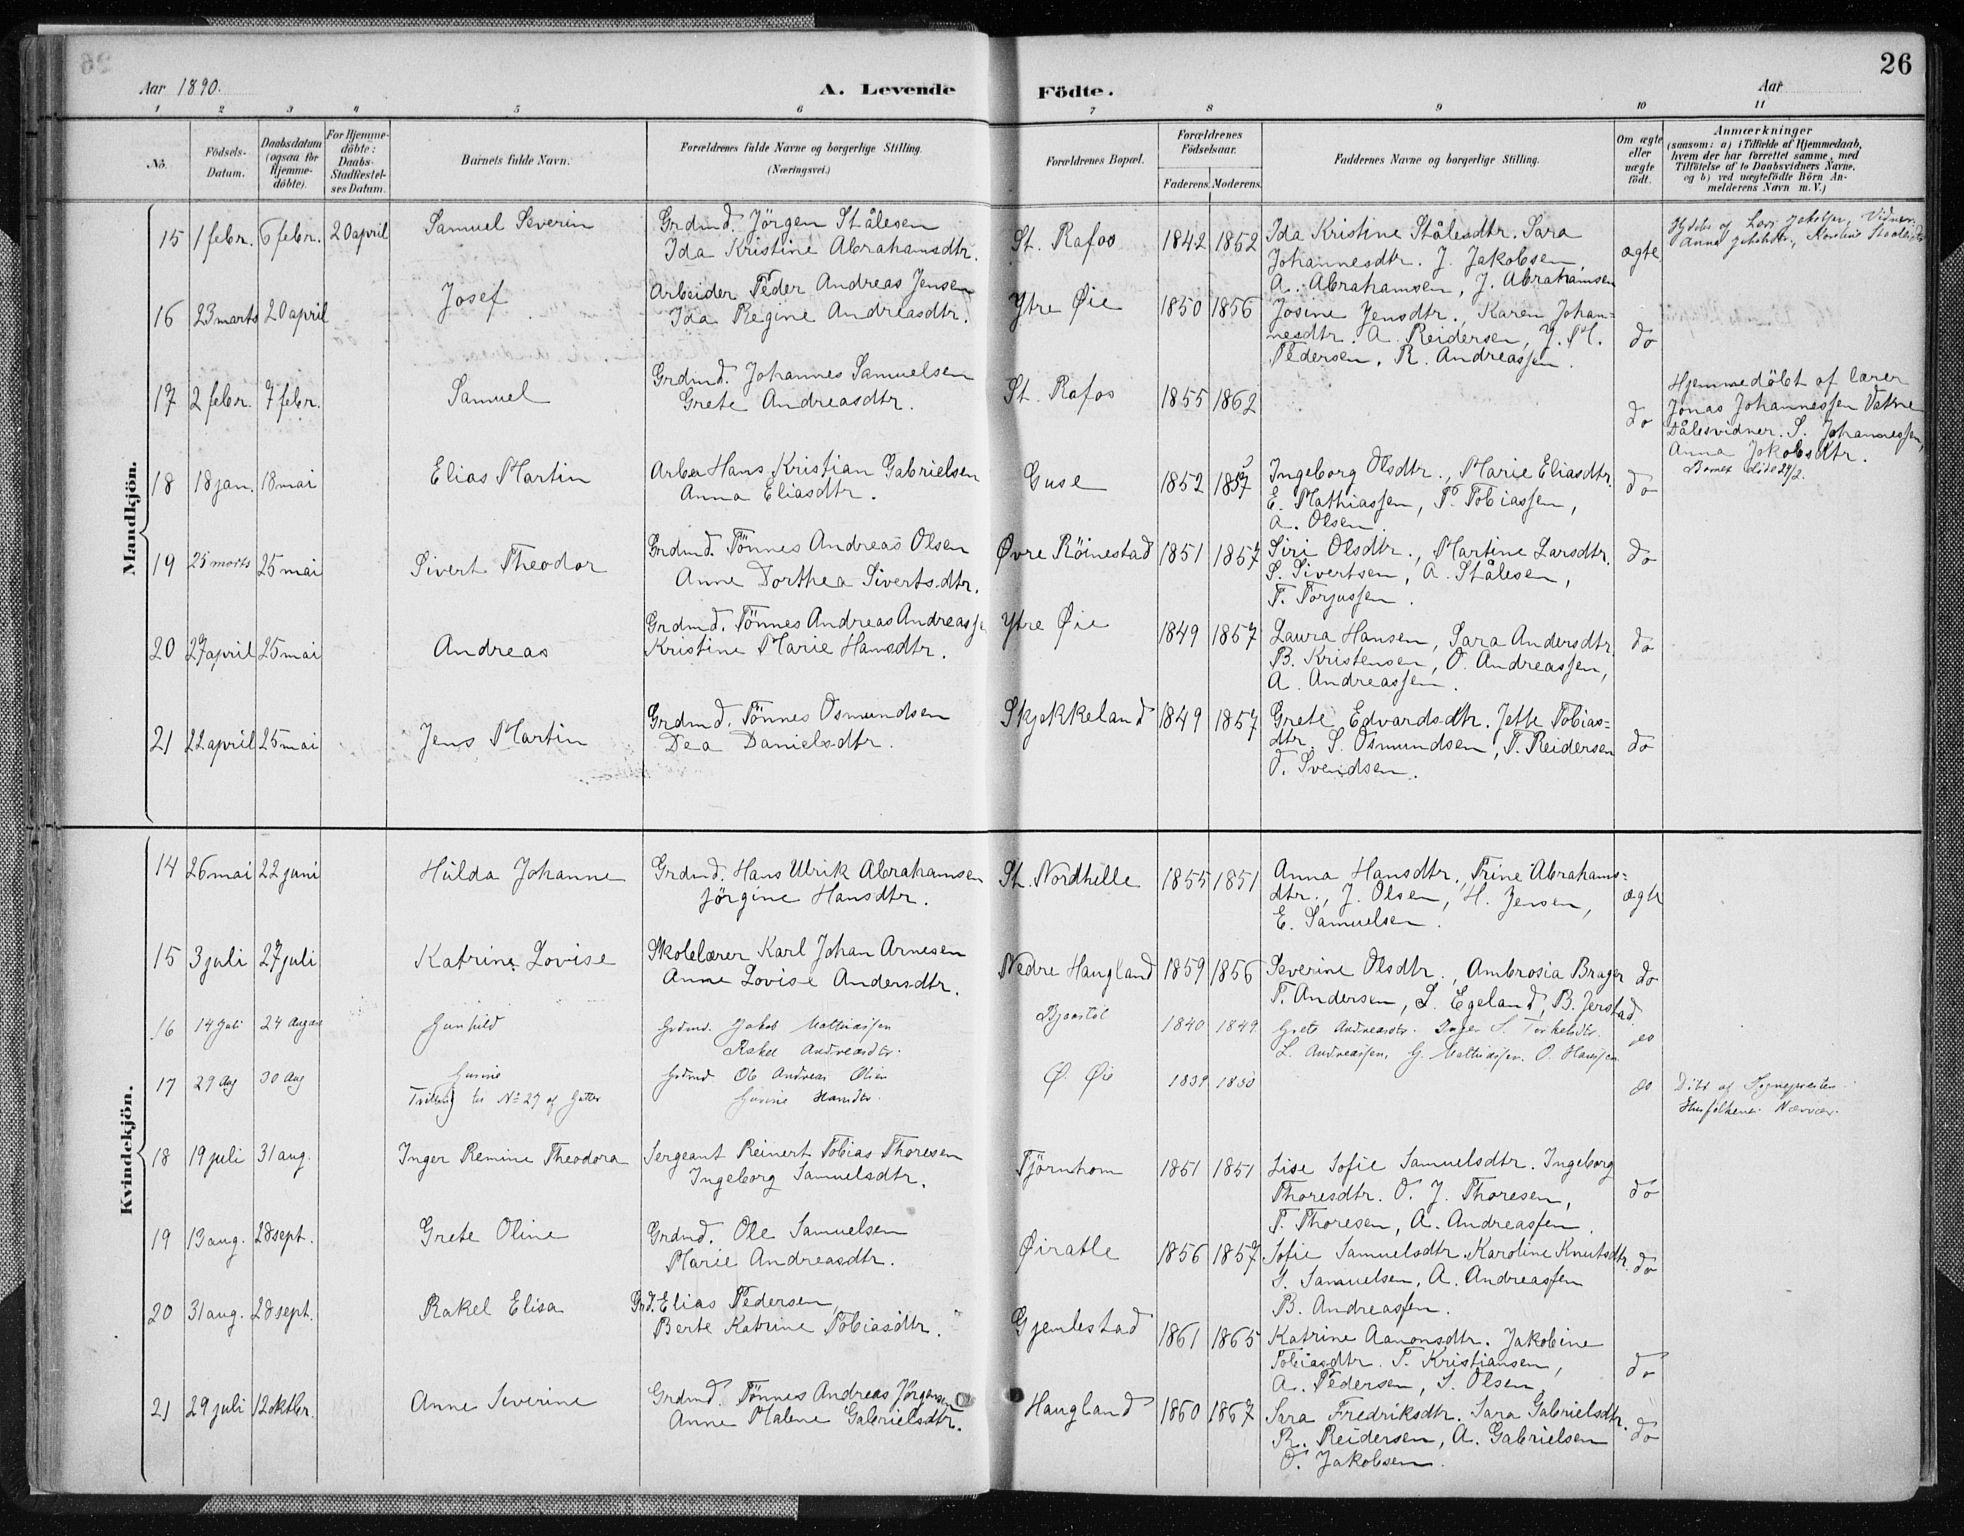 26
Aar 1890.
A. Levende Födte.
Aar
1 2 3 4 5 6 7 8 9 10 11
No.
Födsels-Datum.
Daabsdatum (ogsaa for Hjemme-döbte).
For Hjemme-döbte: Daabs-Stadfæstel-ses Datum.
Barnets fulde Navn.
Forældrenes fulde Navne og borgerlige Stilling.
(Næringsvei.)
Forældrenes Bopæl.
Forældrenes Födselsaar.
Faderens. Moderens.
Faddernes Navne og borgerlige Stilling.
Om ægte eller uægte födt.
Anmærkninger
(saasom: a) i Tilfælde af Hjemmedaab, hvem der har forrettet samme, med Tilföielse af to Daabsvidners Navne, og b) ved uægtefödte Börn An-melderens Navn m. V.)
Mandkjön.
15 1 febr. 6 febr. 20 april Samuel Severin Grdmd. Jörgen Stålesen St. Rafos 1842 1852 Ida Kristine Stålesdtr. Sara ægte
Ida Kristine Abrahamsdtr. Johannesdtr. J. Jakobsen,
A. Abrahamsen, J. Abrahamsen
16 23 marts 20 april Josef Arbeider Peder Andreas Jensen Ytre Øie 1850 1856 Josine Jensdtr., Karen Johan= do
Ida Regine Andreasdtr. nesdtr. A. Reidersen, J. M.
Pedersen, R. Andreassen.
17 2 febr. 7 febr. Samuel Grdmd. Johannes Samuelsen St. Rafos 1855 1862 do Hjemmedöbt af lærer
Grete Andreasdtr. Jonas Johannessen Vatne
Dåbsvidner. S. Johannessen,
Anna Jakobsdtr.
18 18 jan. 18 mai Elias Martin Arber Hans Kristian Gabrielsen Guse 1852 1857 Ingeborg Olsdtr., Marie Eliasdtr. do
Anna Eliasdtr. E. Mathiassen, P. Tobiassen,
A. Olsen.
19 25 marts 25 mai Sivert Theodor Grdmd. Tönnes Andreas Olsen Øvre Röinestad 1851 1857 Siri Olsdtr., Martine Larsdtr. do
Anne Dorthea Sivertsdtr. S. Sivertsen, A. Stålesen,
T. Torjussen.
20 27 april 25 mai Andreas Grdmd. Tönnes Andreas Andreassen Ytre Øie 1849 1857 Laura Hansen, Sara Andersdtr. do
Kristine Marie Hansdtr. B. Kristensen, O. Andreassen,
A. Andreassen.
21 22 april 25 mai Jens Martin Grdmd. Tönnes Osmundsen Skjekkeland 1849 1857 Grete Edvardsdtr. Jette Tobias= do
Dea Danielsdtr. dtr. S. Osmundsen, T. Reidersen
O. Svendsen.
Kvindekjön.
14 26 mai 22 juni Hulda Johanne Grdmd. Hans Ulrik Abrahamsen St. Nordhelle 1855 1851 Anna Hansdtr., Trine Abrahams= ægte
Jörgine Hansdtr. dtr., J. Olsen, H. Jensen,
E. Samuelsen.
15 3 juli 27 juli Katrine Lovise Skolelærer Karl Johan Arnesen Nedre Haugland 1859 1856 Severine Olsdtr., Ambrosia Brager do
Anne Lovise Andersdtr. T. Andersen, S. Egeland, B. Jerstad.
16 14 Juli 24 August Gunhild Grdmd. Jakob Mathiassen 1840 1849 Grete Andreasdtr. Inger S. Torkelsdtr. do
Rakel Andreasdtr. L. Andreassen. G. Mathiassen. O. Hanssen
17 29 Aug 30 Aug Gusine Grdmd Ole Andreas Olsen Ø. Øie 1839 1850 do Döbt af Sognepresten
Tvilling til No 27 af Gutter Gusine Hansdtr. Husfolkene Nærvær.
18 19 juli 31 aug. Inger Remine Theodora Sergeant Reinert Tobias Thoresen Tjörnhom 1851 1851 Lise Sofie Samuelsdtr. Ingeborg do
Ingeborg Samuelsdtr. Thoresdtr. O. J. Thoresen,
T. Thoresen, A. Andreassen.
19 13 aug. 28 sept. Grete Oline Grdmd. Ole Samuelsen Øiratle 1856 1857 Sofie Samuelsdtr. Karoline Knutsdtr. do
Marie Andreasdtr. S. Samuelsen, A. Andreassen
B. Andreassen.
20 31 aug. 28 sept. Rakel Elisa Grd. Elias Pedersen, Gjemlestad 1861 1865 Katrine Aanonsdtr. Jakobine do
Berte Katrine Tobiasdtr. Tobiasdtr. T. Kristiansen,
A. Pedersen, S. Olsen
21 29 juli 12 oktbr. Anne Severine Grdmd. Tönnes Andreas Jörgensen Haugland 1860 1867 Sara Fredriksdtr. Sara Gabrielsdtr. do
Anne Malene Gabrielsdtr. R. Reidersen, A. Gabrielsen
O. Jakobsen.